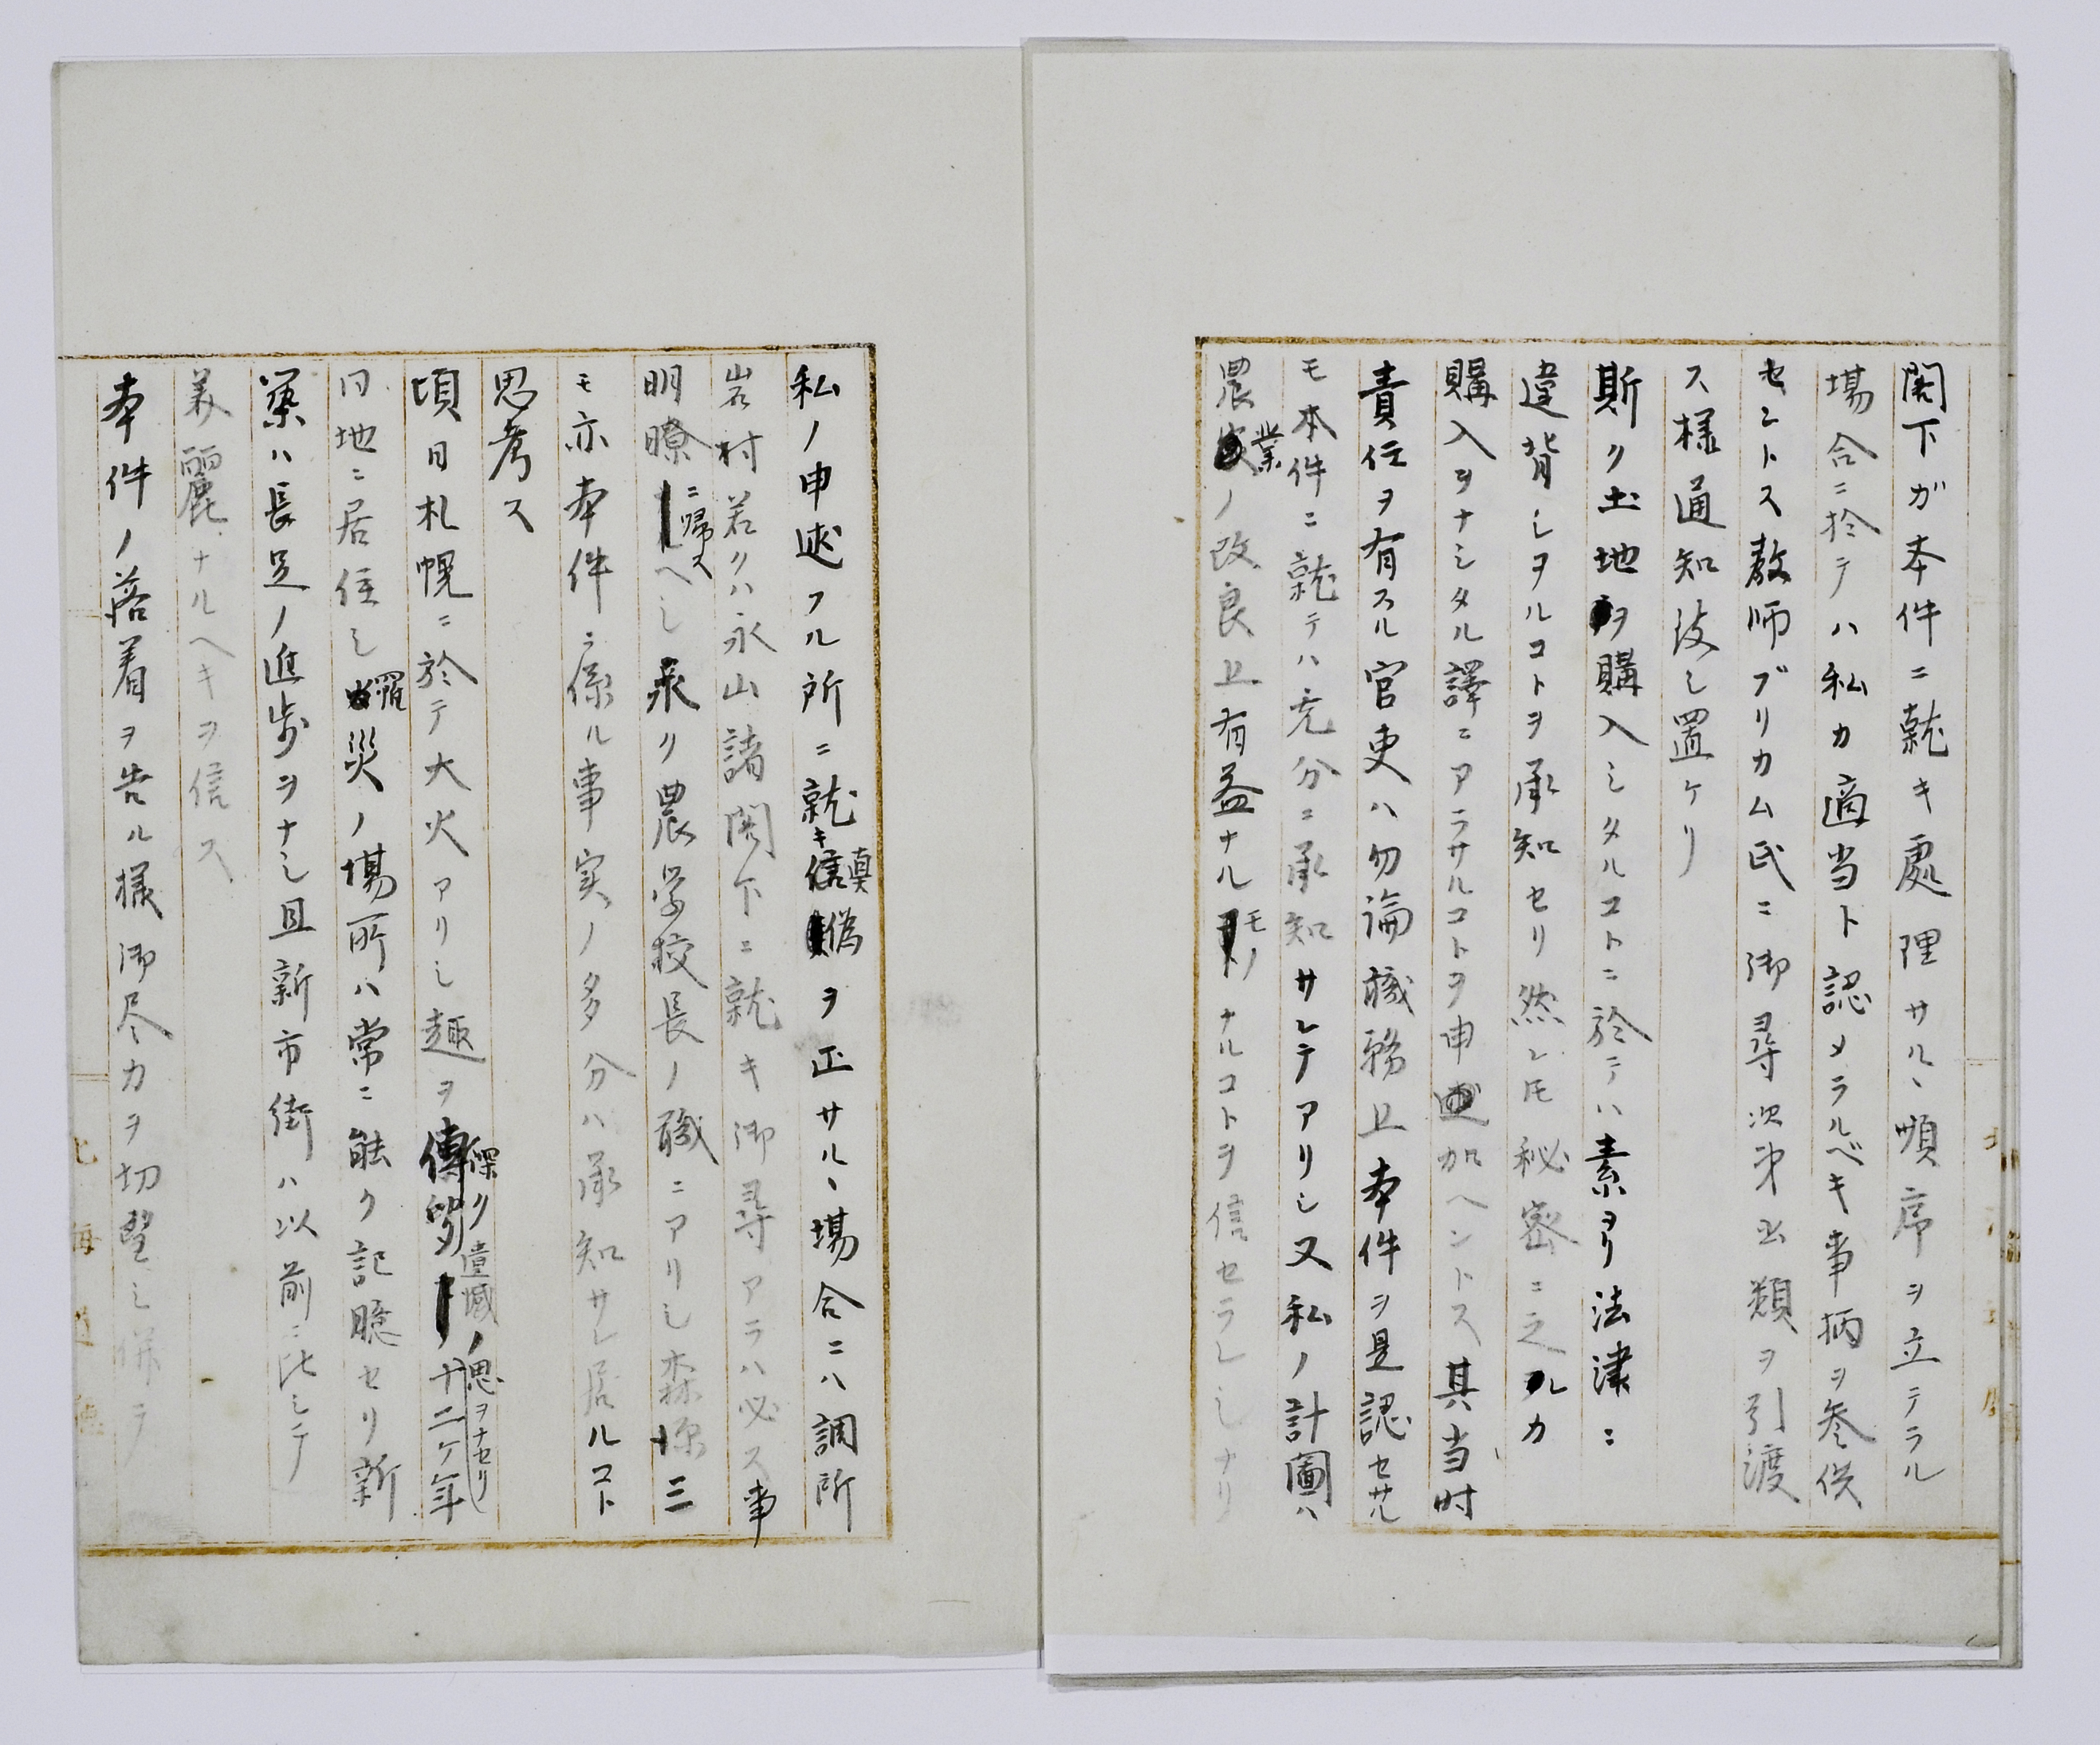 閣下ガ本件ニ就キ處理サルヽ順序ヲ立テラル
場合ニ於テハ私カ適当ト認メラルベキ事柄ヲ参供
セントス教師ブリカム氏ニ御尋次第書類ヲ引渡
ス様通知致シ置ケリ
斯ク土地ヲ購入シタルコトニ於テハ素ヨリ法律ニ
違背シヲルコトヲ承知セリ然レ𪜈秘密ニ之レカ
購入ヲナシタル譯ニアラサルコトヲ申加ヘントス其当時
責任ヲ有スル官吏ハ勿論職務上本件ヲ是認セサル
モ本件ニ就テハ充分ニ承知サレテアリシ又私ノ計圖ハ
農業ノ改良上有益ナルモノナルコトヲ信セラレシナリ
私ノ申述フル所ニ就キ真偽ヲ正サルヽ場合ニハ調所
岩村若クハ永山諸閣下ニ就キ御尋アラハ必ス事
明瞭ニ帰スヘシ永ク農学校長ノ職ニアリシ森源三
モ亦本件ニ係ル事実ノ多分ハ承知サレ居ルコト
思考ス
頃日札幌ニ於テ大火アリシ趣ヲ傳聞シ深ク遺憾ノ思ヲナセリ十二ケ年
同地ニ居住シ罹災ノ場所ハ常ニ能ク記臆セリ新
築ハ長足ノ進歩ヲナシ且新市街ハ以前ニ比シテ
美麗ナルヘキヲ信ス
本件ノ落着ヲ告ル様御尽力ヲ切望シ併テ
北海道